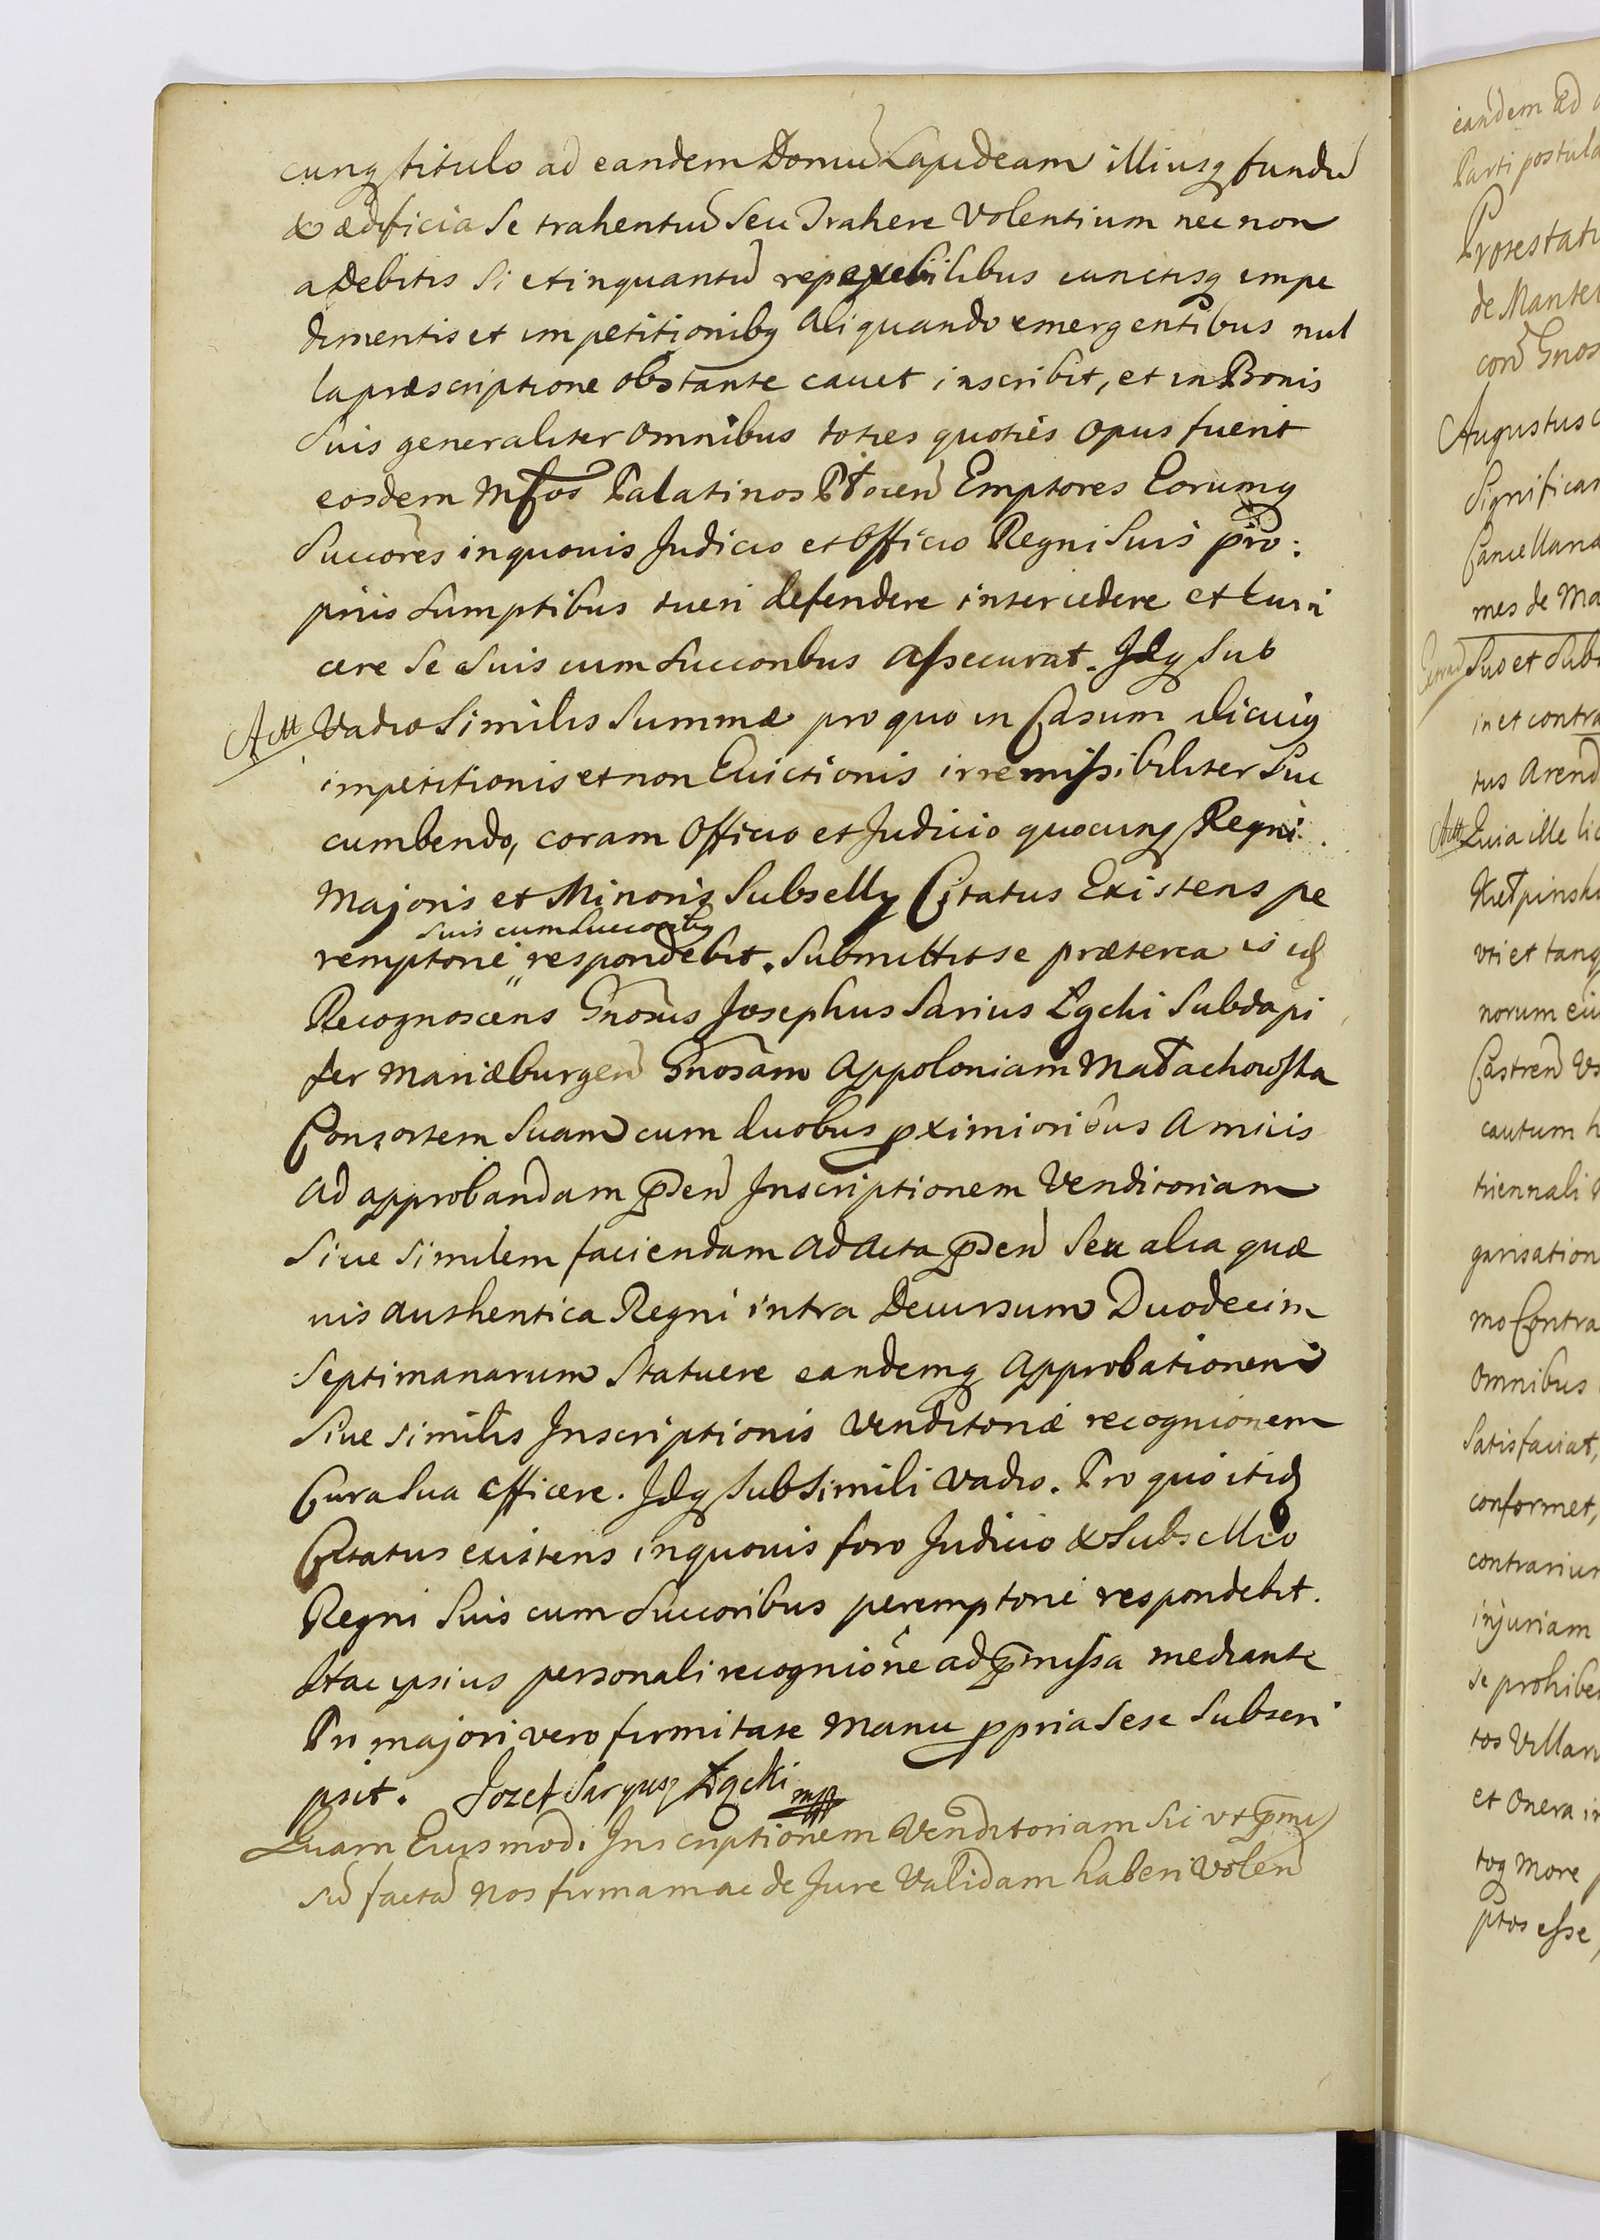 cunq titulo ad eandem Domū Lapideam illiusq fundū
& ædificia se trahentiū seu Trahere Volentium nec non
a Debitis si et inquantū reperibilibus cunctisq impe
dimentis et impetitionibq aliquando emergentibus nul
la præscriptione obstante cavet inscribit, et in Bonis
suis generaliter omnibus toties quoties opus fuerit
eosdem Mfcos Palatinos Płocen Emptores Eorumq
succores in quovis Judicio et Officio Regni suis pro:
priis sumptibus tueri defendere intercedere et evin
cere se suis cum succoribus assecurat. Idq sub
Vadio similis summæ pro quo in Casum alicuiq
impetitionis et non Evictionis irremissibiliter suc
cumbendo, coram Officio et Judicio quocunq Regni
Majoris et Minoris subsellij Citatus Existens pe
suis cum succoribq
remptorie respondebit. Submittit se præterea is id
Recognoscens Gnosus Josephus Sarius Łącki subdapi
fer Mariæburgen Gnosam Appoloniam Małachowska
Consortem suam cum duobus pximioribus Amicis
ad approbandam pden Inscriptionem Venditoriam
sive similem faciendam ad Acta pden seu alia quæ
vis authentica Regni intra Decursum Duodecim
septimanarum statuere eandemq Approbationem
sive similis Inscriptionis Venditoriæ recognionem
Cura sua efficere. Idq sub simili vadio. Pro quo itid
Citatus existens in quovis foro Judicio & subsellio
Regni suis cum succoribus peremptorie respondebit.
Hac ipsius personali recognione ad pmissa mediante
Pri majori vero firmitate manu ppria sese subscri
psit. Jozef Saryusz Łącki mpp
Quam Eiusmodi Inscriptionem Venditoriam sic ut pmis
sū factā nos firmam ac de Jure Validam haberi Volen
Att
eandem ad
Parti postula
Protestati
de Mante
con Gnos
Augustus
significav
Cancellaria
mes de Ma
suo et sub
in et contra
tus Arend
Att Quia ille lic
Kiełpinski
uti et tanq
norum eiu
Castren Us
cautum h
triennali
garisation
mo Contra
omnibus
satisfaciat,
conformet,
contrarium
injuriam
se prohibe
tos Villan
et onera in
toq more
ptos esse,